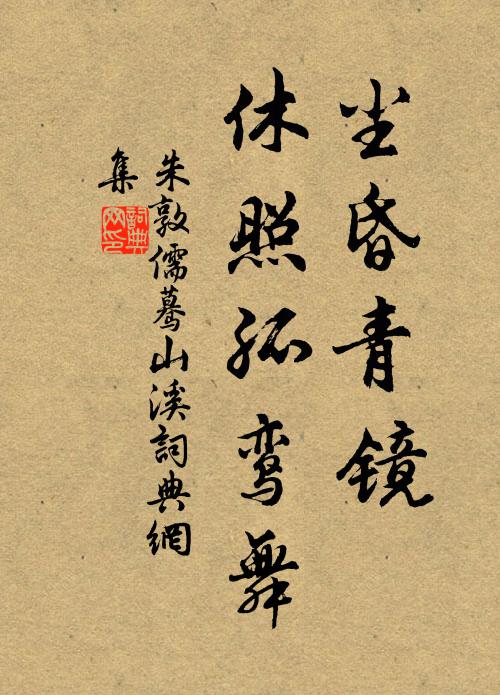 尘昏青镜
休照孤鸾舞
朱敦儒蓦山溪詞典網
集
詞典网印